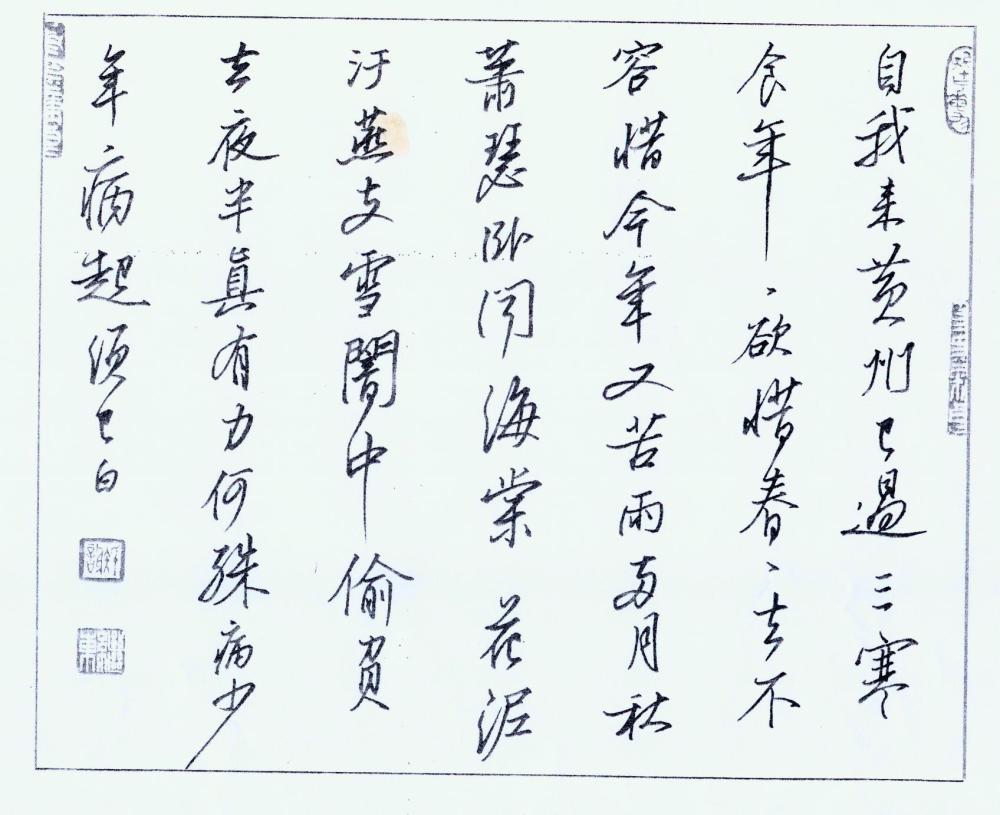 自我来黄州已過三寒
食年、欲惜春、去不
容惜今年又苦雨两月秋
萧瑟卧闻海棠花泥
汙燕支雪闇中偷負
去夜半真有力何殊病少
年病起须已白